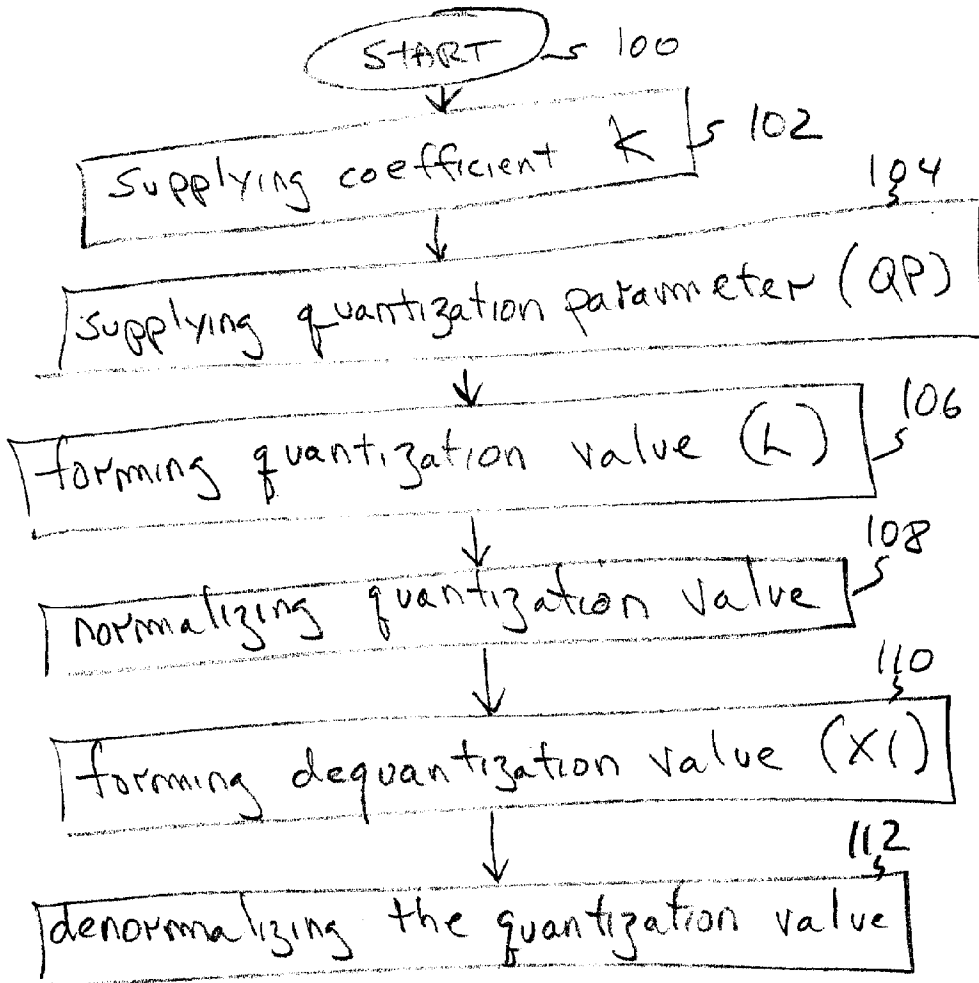 START 100
Supplying coefficient K 102
104
supplying quantization parameter (QP)
106
forming quantization value (L)
108
normalizing quantization value
110
forming dequantization value (X1)
112
denormalizing the quantization value